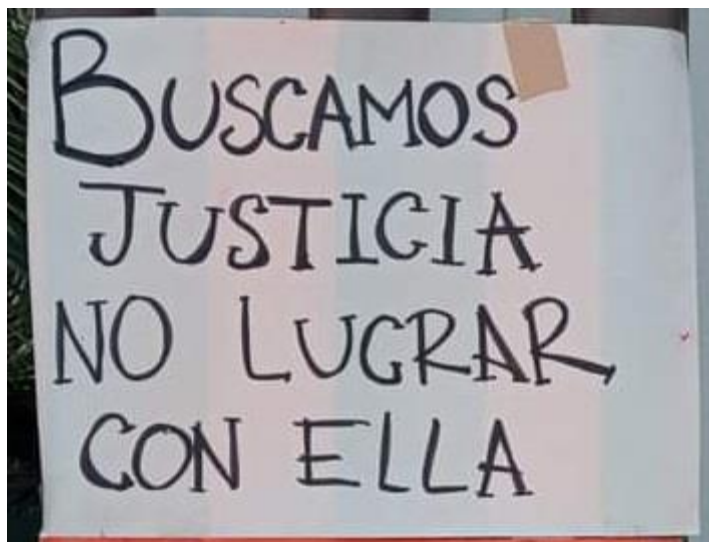 BUSCAMOS
JUSTICIA
NO LUCRAR
CON ELLA